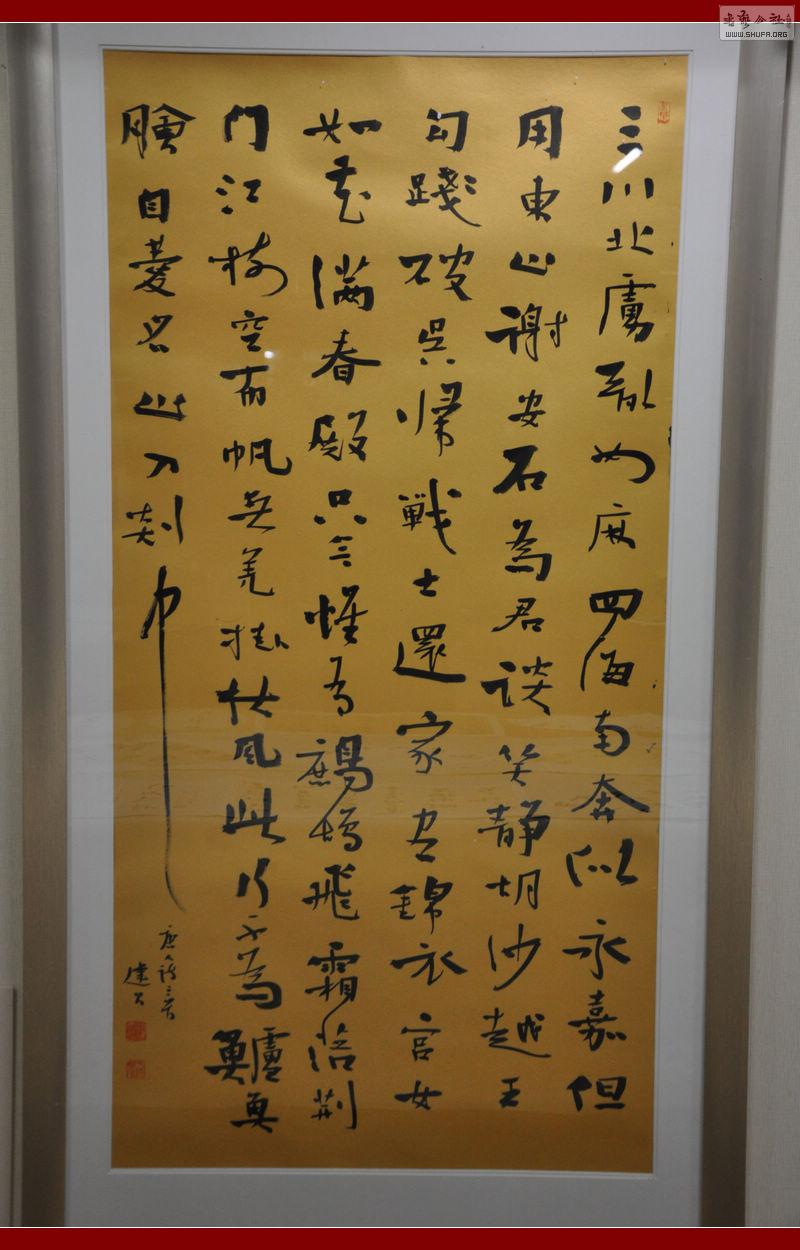 書藝公社
WWW.SHUFA.ORG
三川北虜亂如麻四海南奔似永嘉但
用東山謝安石為君談笑静胡沙越王
勾踐破吳歸戰士還家盡錦衣宮女
如花滿春殿只今惟有鷓鴣飛霜落荆
門江樹空布帆無恙掛秋風此行不為鱸魚
膾自愛名山入剡中
唐人詩三首